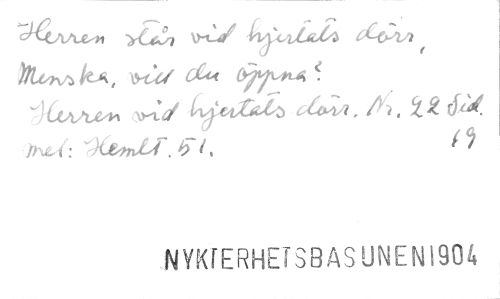 Herren står vid hjertats dörr,
Menska, vill du öppna?
Herren vid hjertats dörr. Nr. 22 Sid.
mel: Hemlt. 51. 19
NYKTERHETSBASUNEN 1904